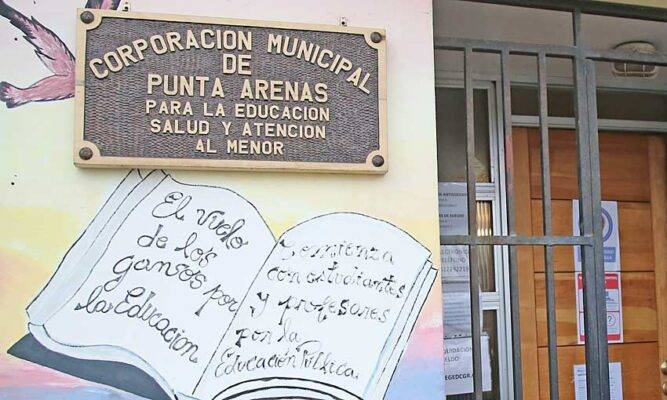 CORPORACION MUNICIPAL
DE
PUNTA ARENAS
PARA LA EDUCACION
SALUD Y ATENCION
AL MENOR
El vuelo
de los
gansos por
la Educacion
Comienza
con estudiantes
y profesores
por la
Educación Pública